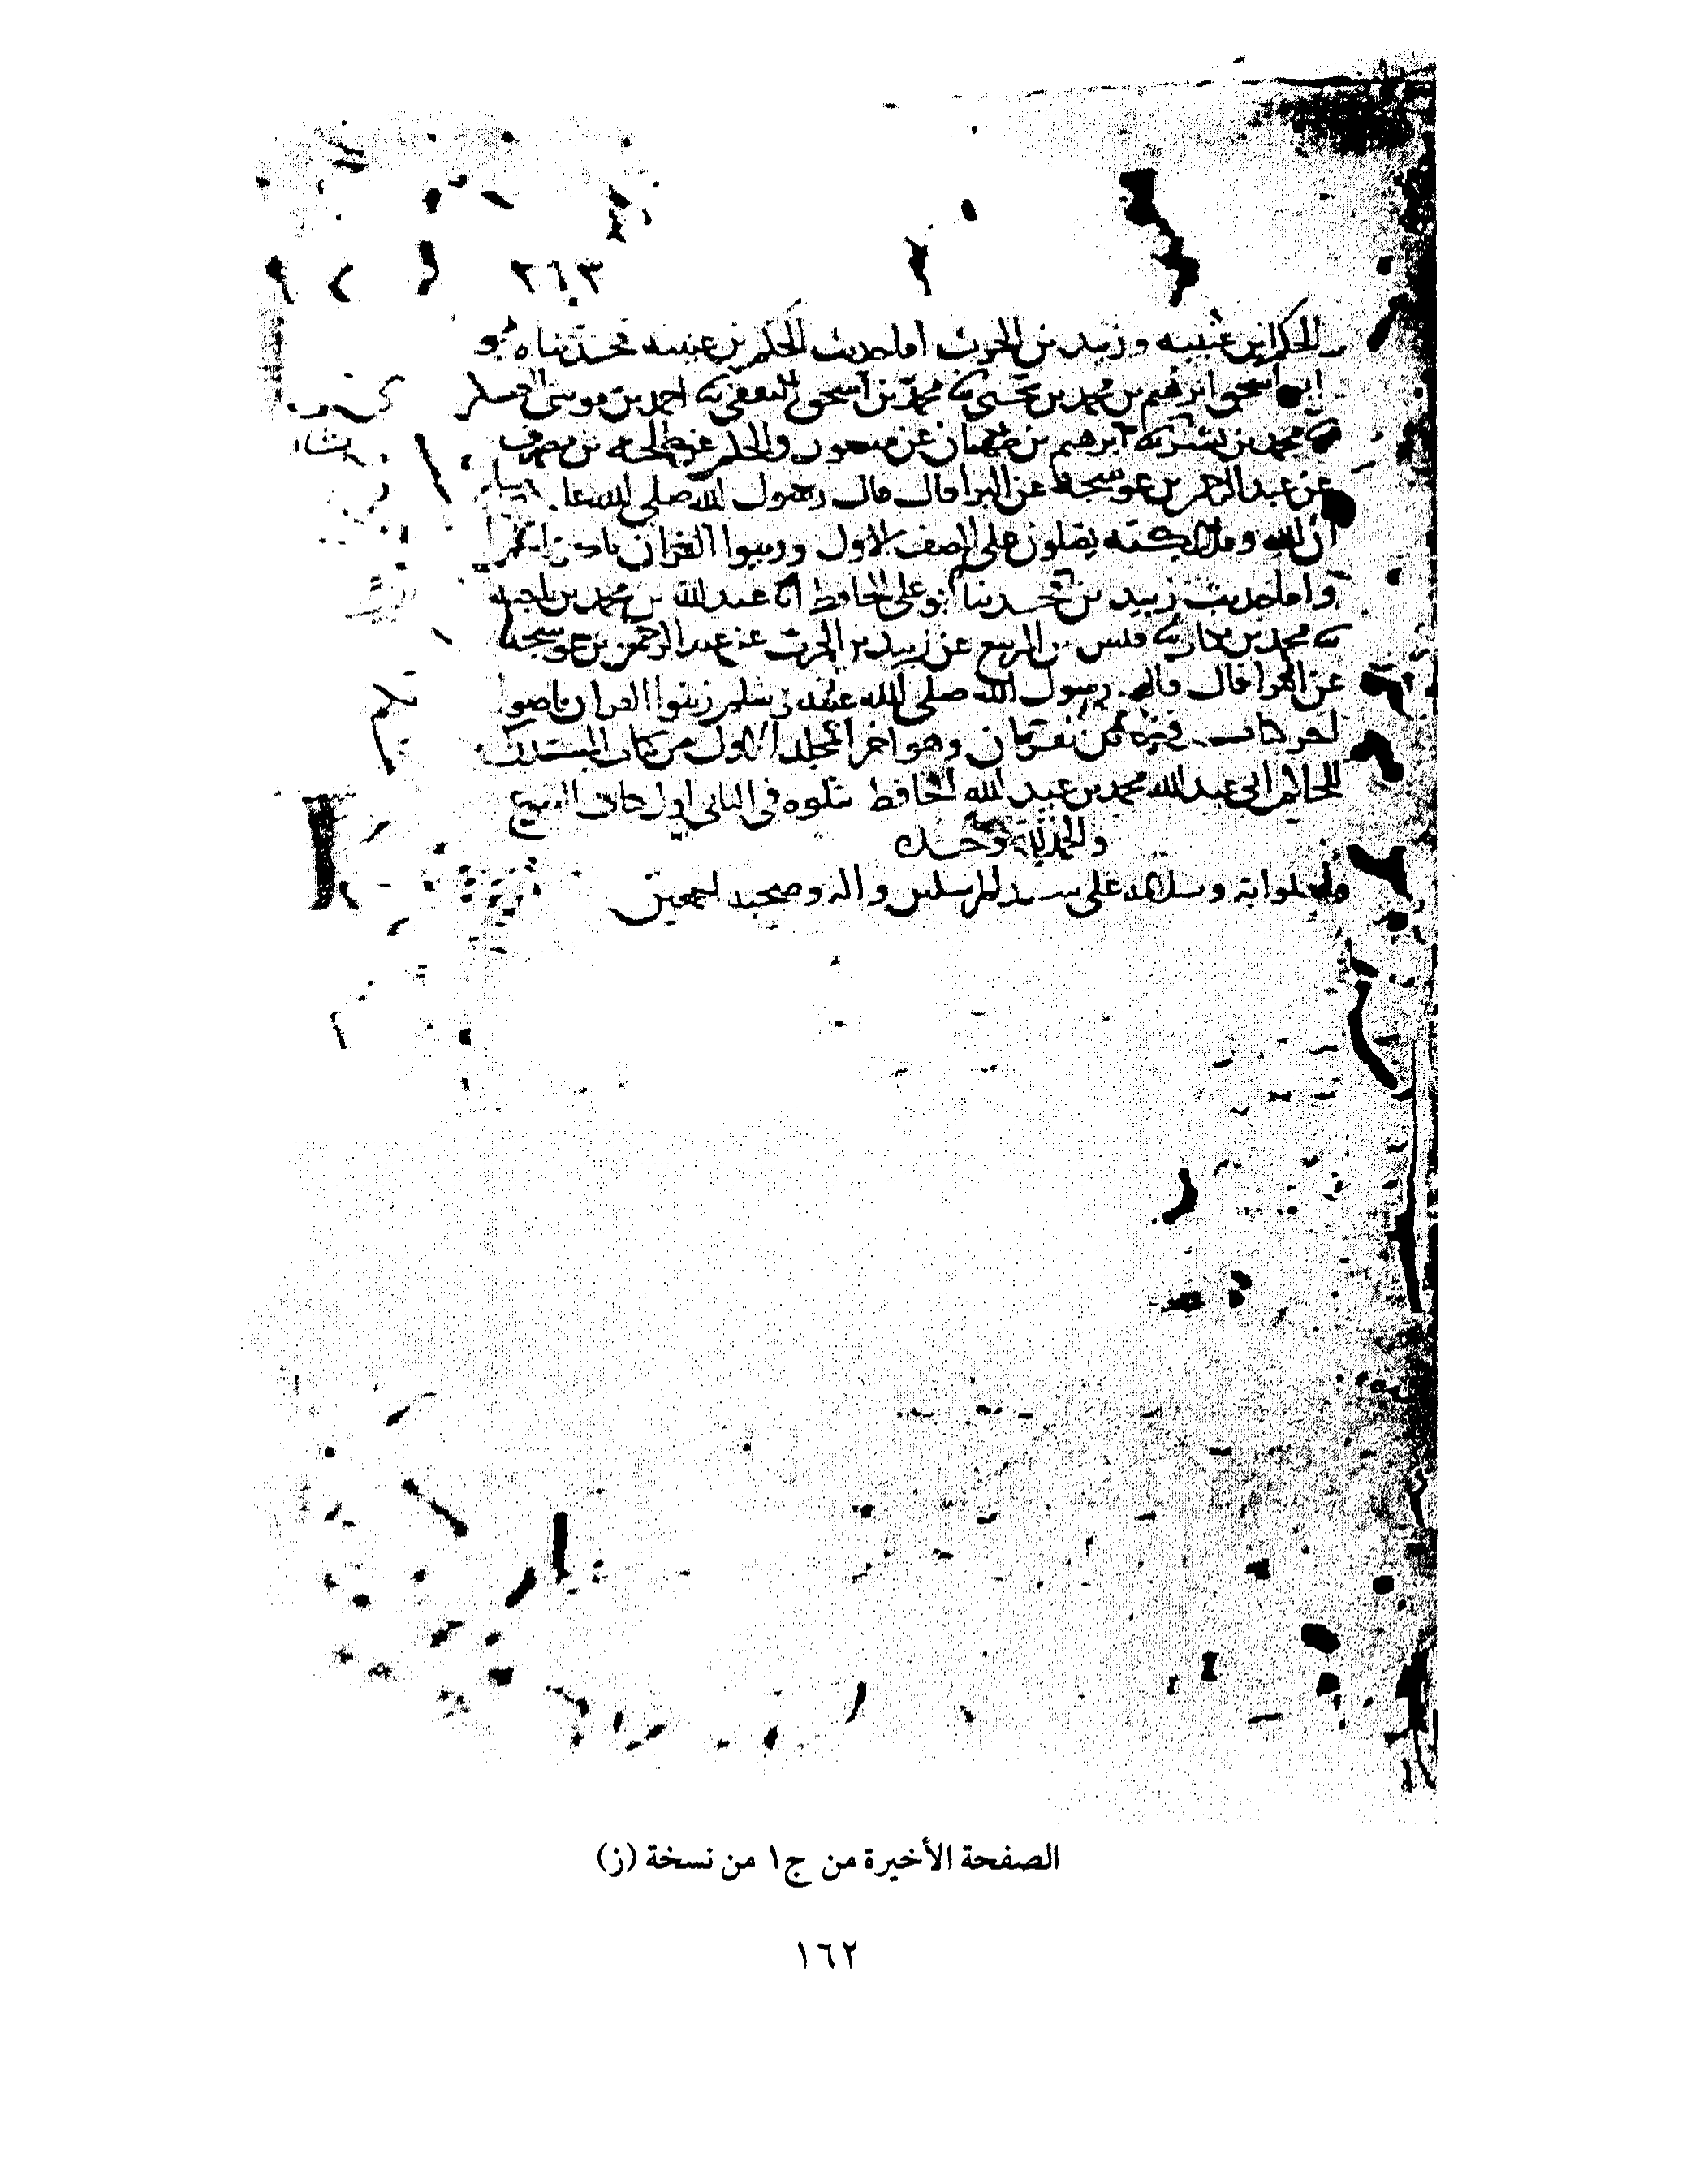 ٢٦٣
الحكم بن عتيبه وزبيد بن الحرث اما حديث الحكم بن عتيبه فحدثناه ابو
اسحق ابرهيم بن محمد بن يحيى ثنا محمد بن اسحق الثقفي ثنا احمد بن موسى
ثنا محمد بن ثنا ابرهيم بن طهمان عن منصور والحكم عن طلحه بن مصرف
عن عبد الرحمن بن عوسجه عن البرا قال قال رسول الله صلى الله
ان الله وملائكته يصلون على الصف الاول وزينوا القران
واما حديث زبيد بن فحدثنا ابو على الحافظ انا عبد الله بن محمد بن ناجيه
ثنا محمد بن بكار ثنا قيس بن الربيع عن زبيد بن الحرث عن عبد الرحمن بن عوسجه
عن البرا قال قال رسول الله صلى الله عليه وسلم زينوا القران باصوا
وهو اخر المجلد الاول من كتاب المستدرك
للحاكم ابى عبد الله محمد بن عبد الله الحافظ تتلوه فى الثانى اول كتاب البيوع
والحمد لله وحده
وصلواته وسلامه على سيد المرسلين واله وصحبه اجمعين
الصفحة الأخيرة من ج١ من نسخة (ز)
١٦٢